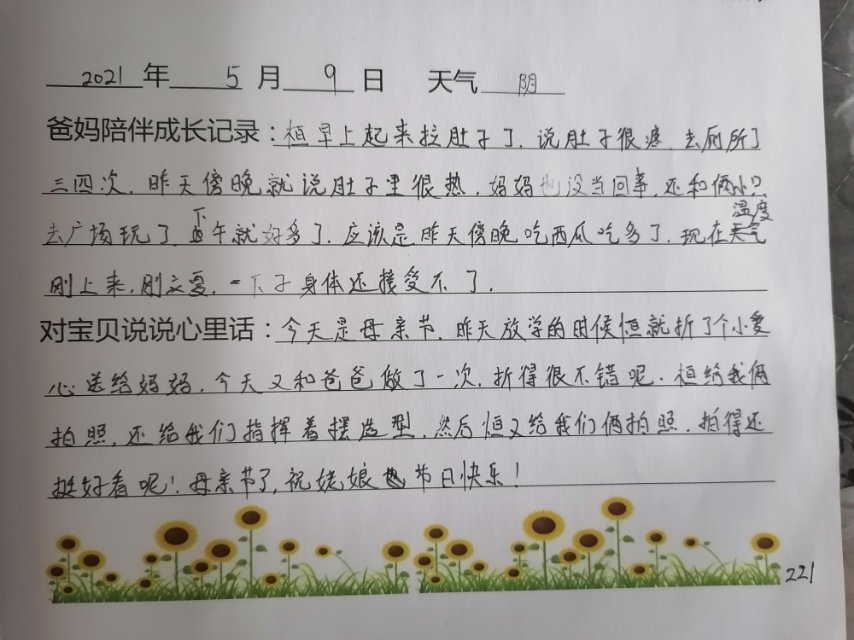 2021 年 5 月 9 日 天气 阴
爸妈陪伴成长记录：恒早上起来拉肚子了，说肚子很疼，去厕所了
三四次，昨天傍晚就说肚子里很热，妈妈也没当回事，还和俩小只
去广场玩了，下午就好多了，应该是昨天傍晚吃西瓜吃多了，现在温度
刚上来，刚立夏，一下子身体还接受不了。
对宝贝说说心里话：今天是母亲节，昨天放学的时候恒就折了个小爱
心送给妈妈，今天又和爸爸做了一次，折得很不错呢。恒给我俩
拍照，还给我们指挥着摆造型，然后恒又给我们俩拍照，拍得还
挺好看呢！母亲节了，祝姥娘也节日快乐！
221